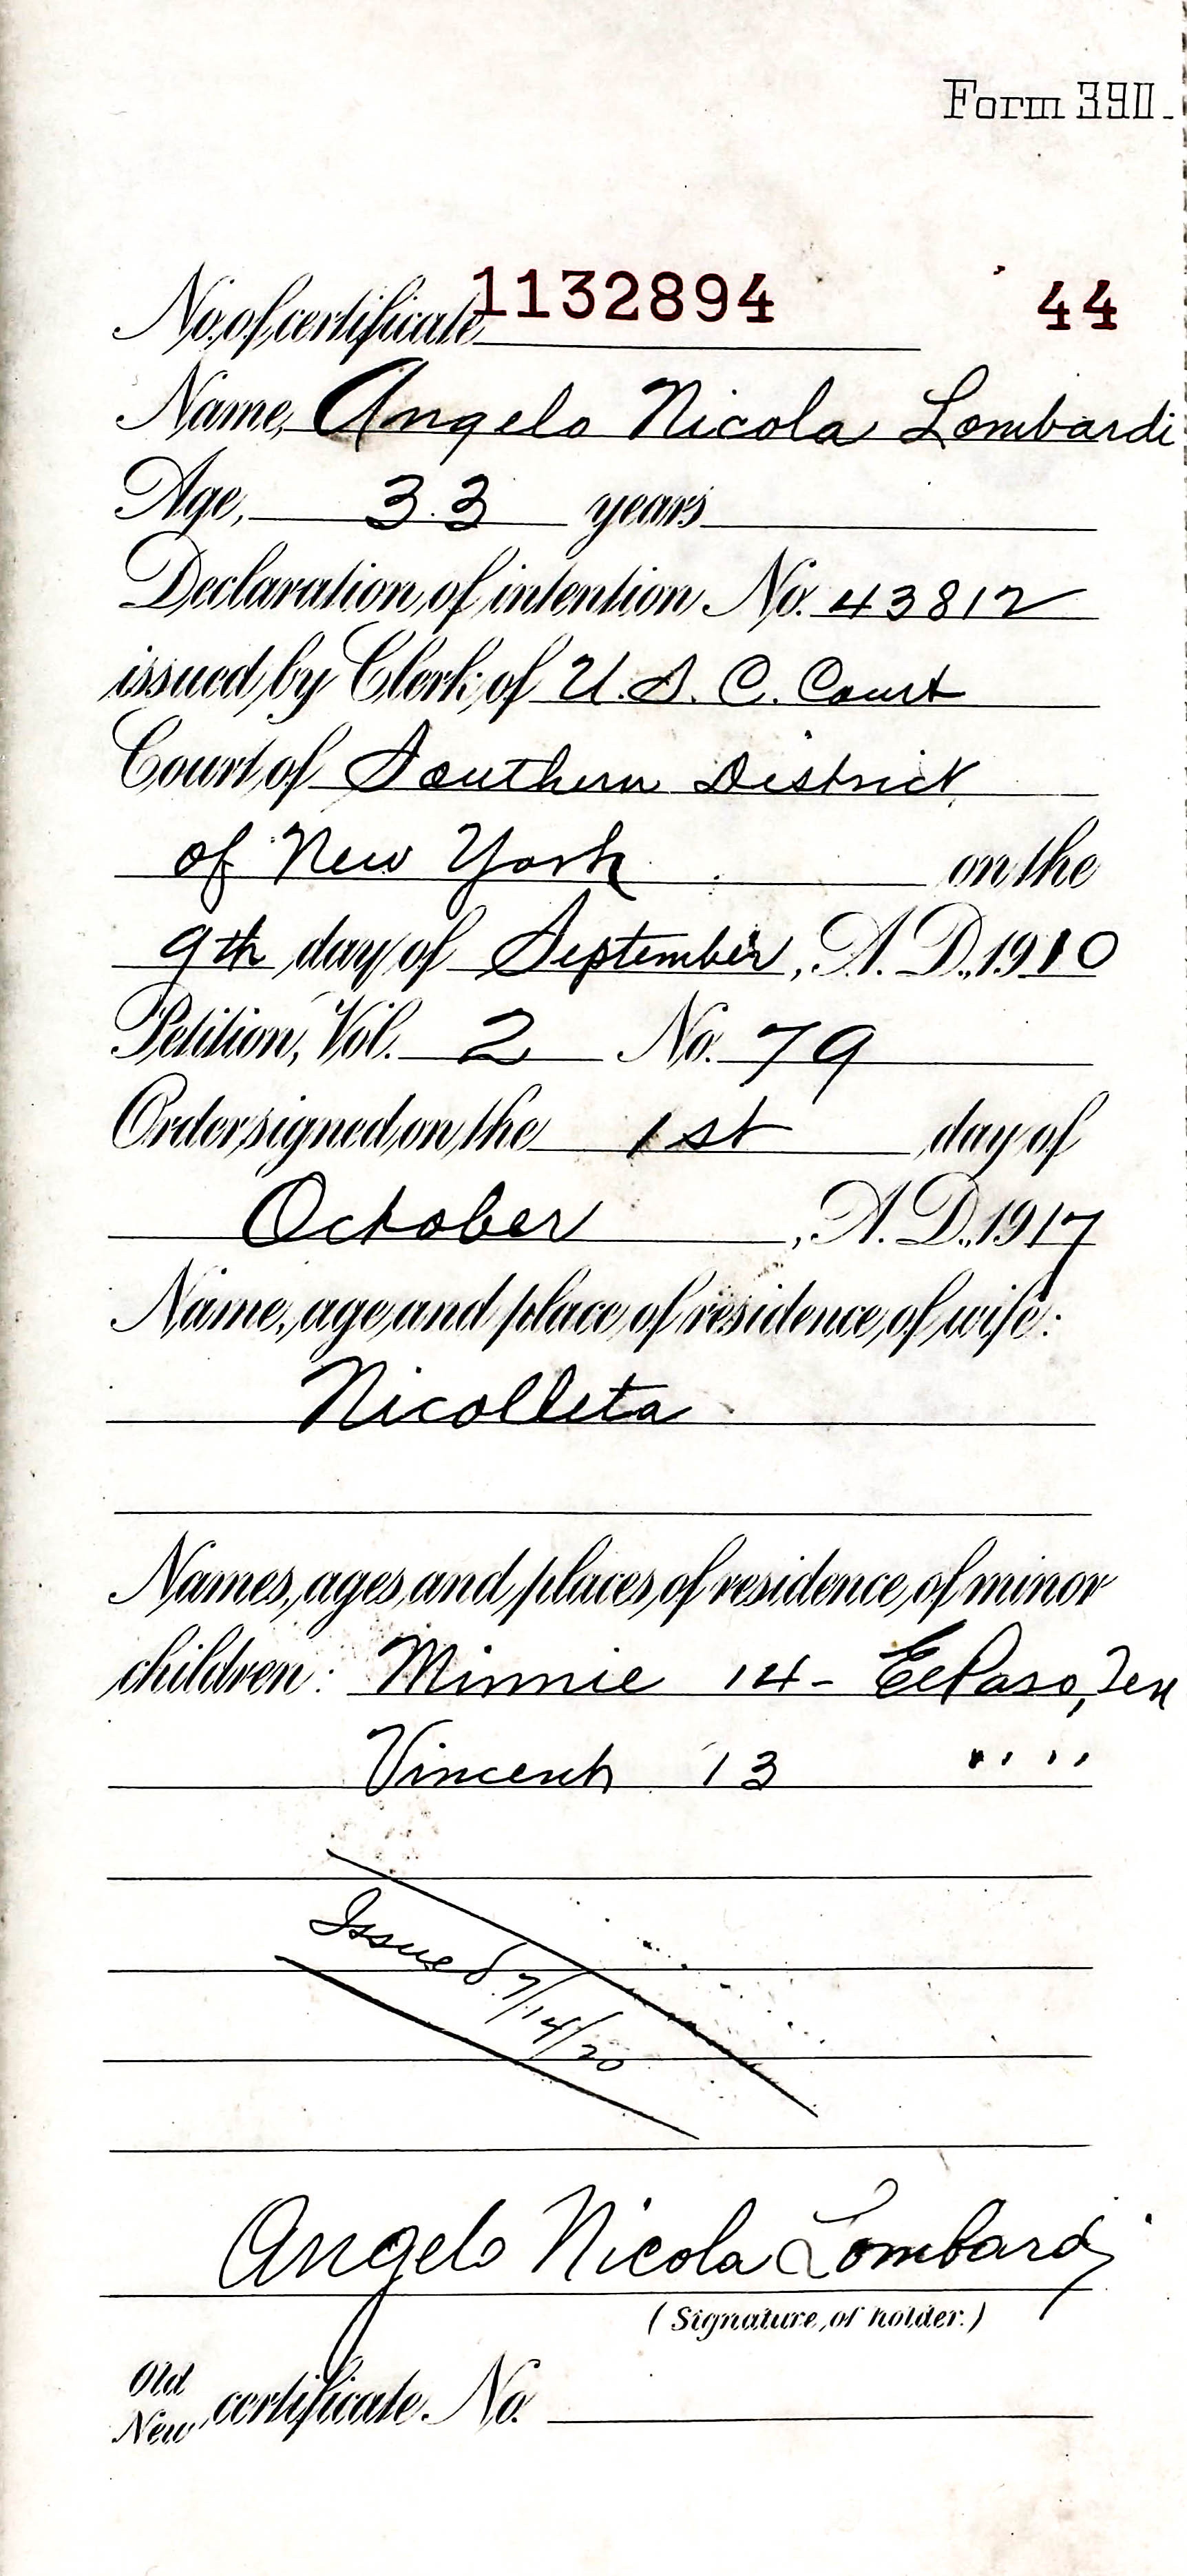 Form 390.
No. of certificate 1132894 44
Name, Angelo Nicola Lombardi
Age, 33 years
Declaration of intention No. 43812
issued by Clerk of U. S. C. Court
Court of Southern District
of New York on the
9th day of September, A. D. 1910
Petition, Vol. 2 No. 79
Order signed on the 1st day of
October, A. D. 1917
Name, age and place of residence of wife:
Nicolleta
Names, ages and places of residence of minor
children: Minnie 14 - El Paso, Tex
Vincent 13 " " "
Issued 7/14/20
Angelo Nicola Lombardi
(Signature of holder.)
Old
New certificate No.